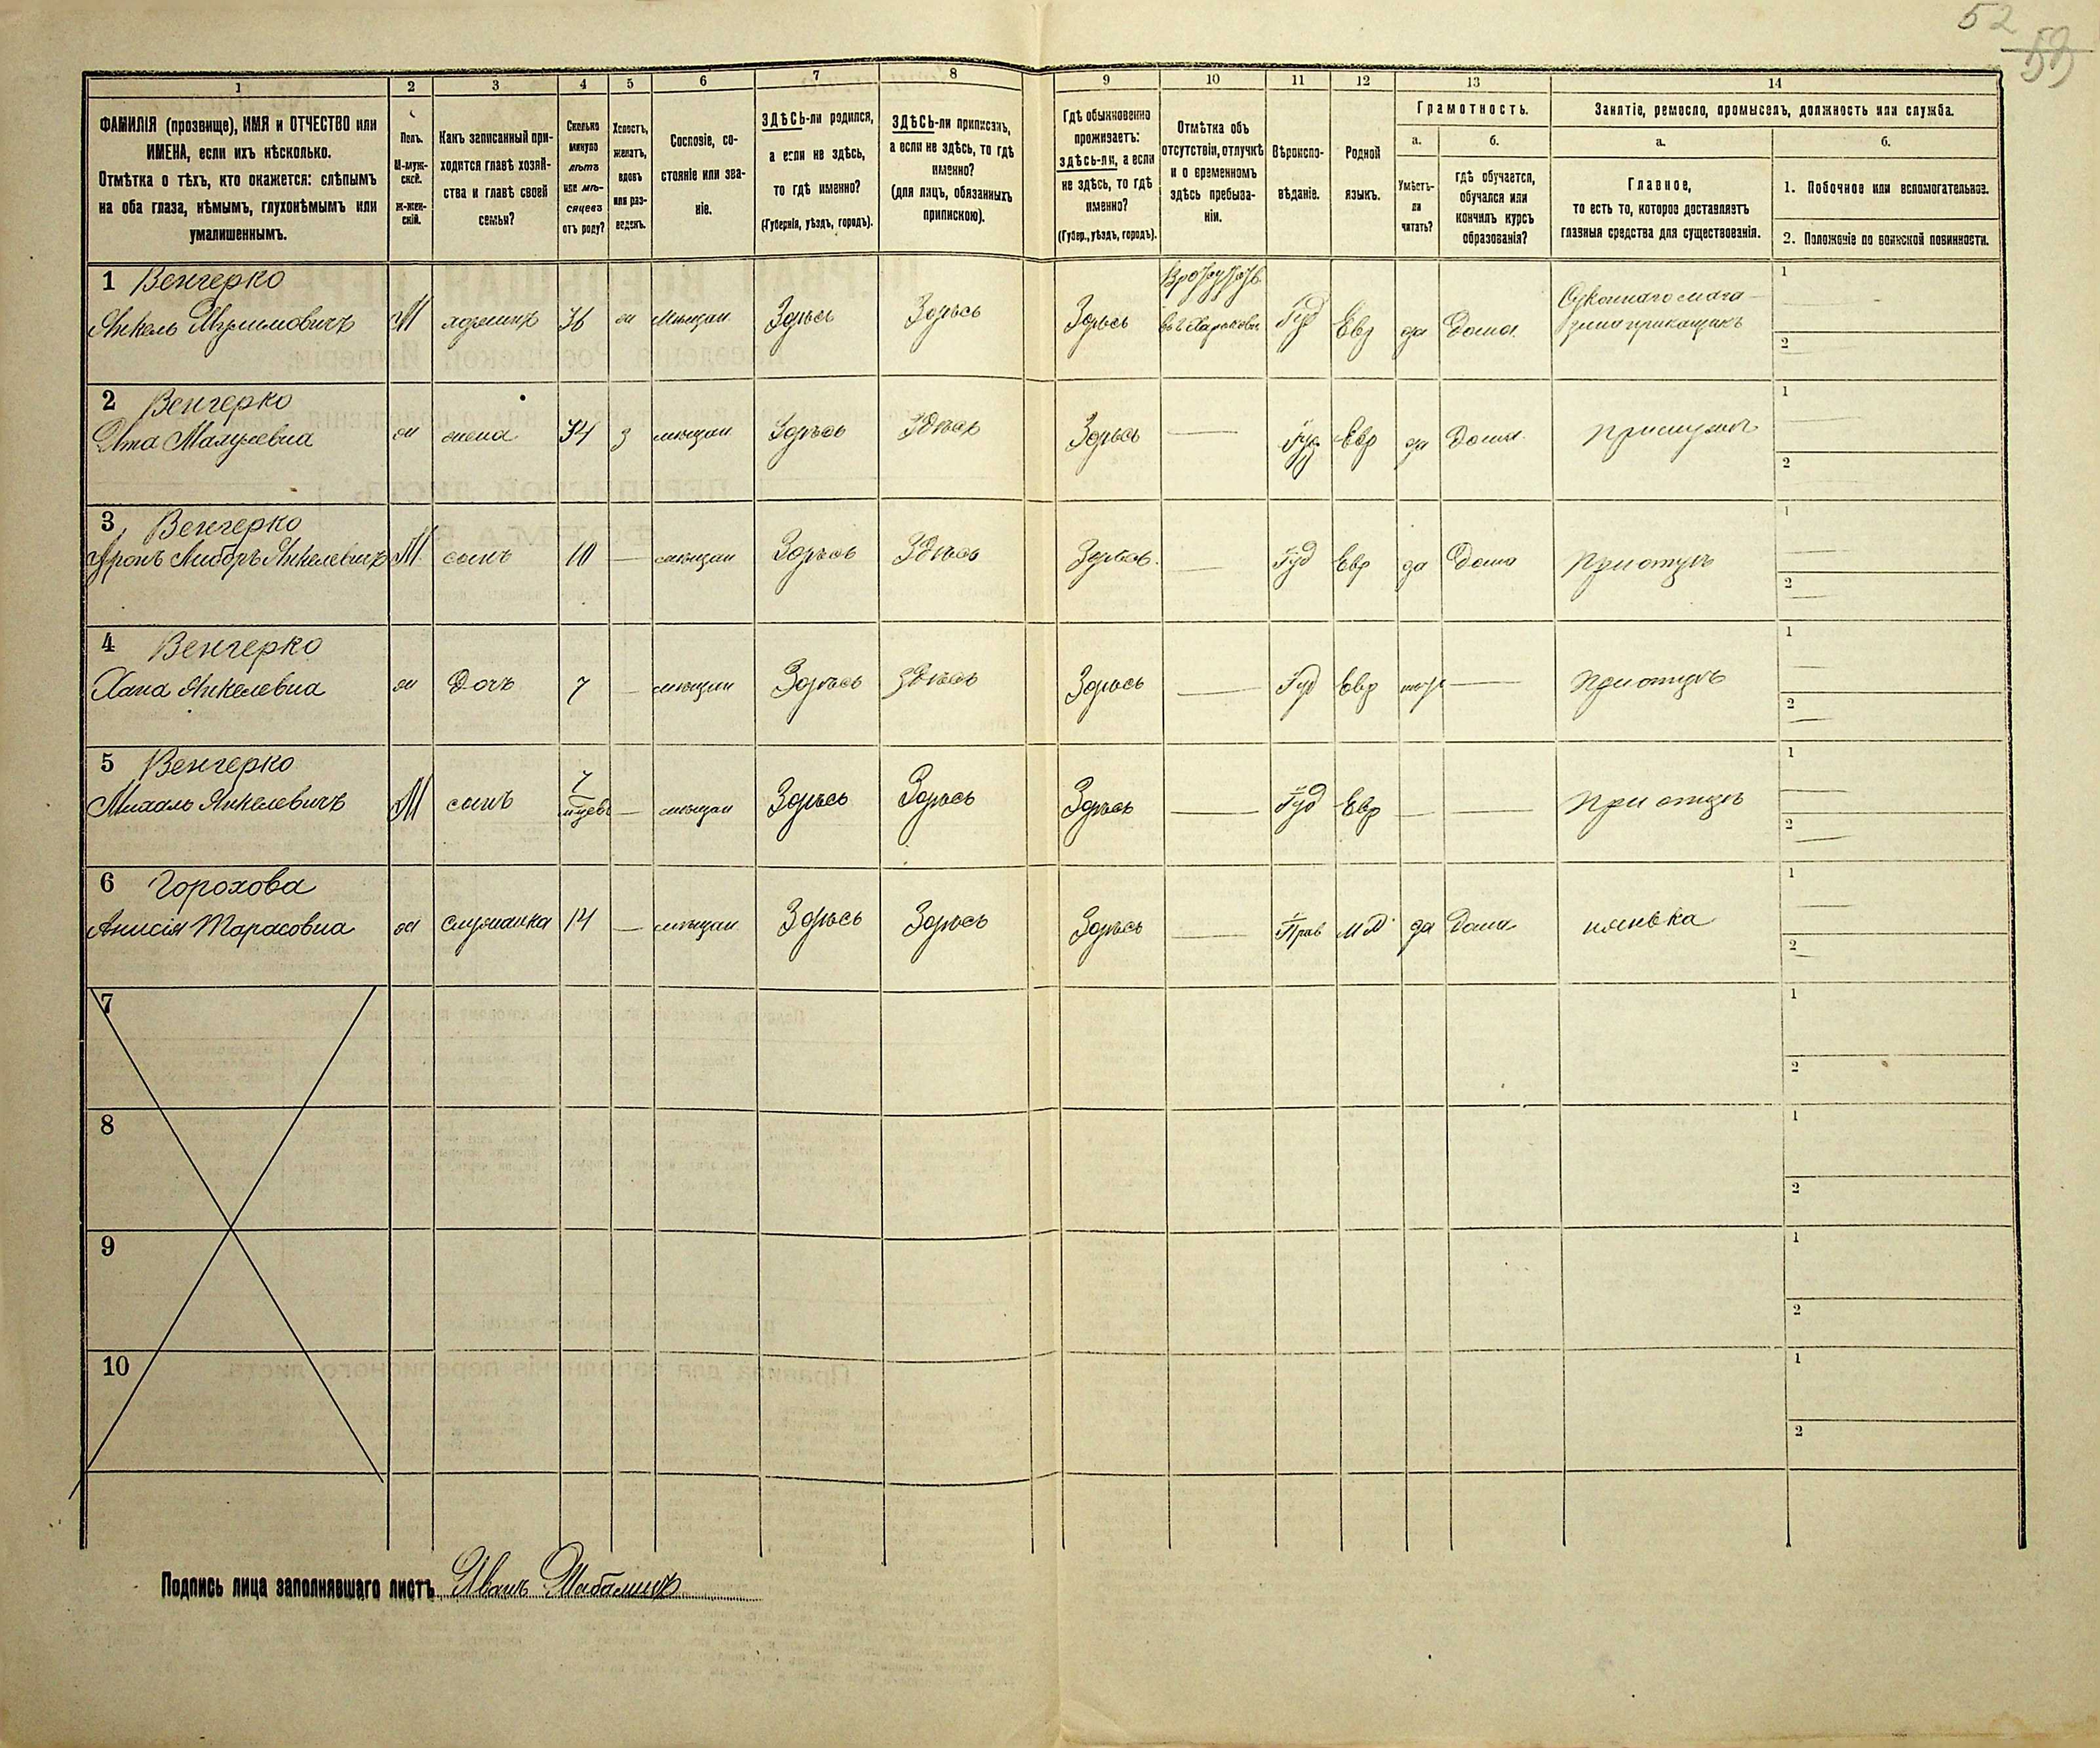 52
53
1 2 3 4 5 6 7 8 9 10 11 12 13 14
ФАМИЛІЯ (прозвище), ИМЯ и ОТЧЕСТВО или
ИМЕНА, если ихъ нѣсколько.
Отмѣтка о тѣхъ, кто окажется: слѣпымъ
на оба глаза, нѣмымъ, глухонѣмымъ или
умалишеннымъ.
Полъ.
М-муж-
ской.
ж-жен-
скій.
Какъ записанный при-
ходится главѣ хозяй-
ства и главѣ своей
семьи?
Сколько
минуло
лѣтъ
или мѣ-
сяцевъ
отъ роду?
Холостъ,
женатъ,
вдовъ
или раз-
веденъ.
Сословіе, со-
стояніе или зва-
ніе.
ЗДѢСЬ-ли родился,
а если не здѣсь,
то гдѣ именно?
(Губернія, уѣздъ, городъ).
ЗДѢСЬ-ли приписанъ,
а если не здѣсь, то гдѣ
именно?
(для лицъ, обязанныхъ
припискою).
Гдѣ обыкновенно
проживаетъ:
здѣсь-ли, а если
не здѣсь, то гдѣ
именно?
(Губер., уѣздъ, городъ).
Отмѣтка объ
отсутствіи, отлучкѣ
и о временномъ
здѣсь пребыва-
ніи.
Вѣроиспо-
вѣданіе.
Родной
языкъ.
Грамотность.
а.
Умѣетъ-
ли
читать?
б.
гдѣ обучается,
обучался или
кончилъ курсъ
образованія?
Занятіе, ремесло, промыселъ, должность или служба.
а.
Главное,
то есть то, которое доставляетъ
главныя средства для существованія.
б.
1. Побочное или вспомогательное.
2. Положеніе по воинской повинности.
1 Венгерко
Янкель М хозяинъ 36 ж мѣщан Здѣсь Здѣсь Здѣсь въ г. Харьковѣ Іуд Евр да Дома приказчикъ
1
2
2 Венгерко
ж жена 34 з мѣщан Здѣсь Здѣсь Здѣсь — Іуд Евр да Дома при мужѣ
1
2
3 Венгерко
Аронъ Янкелевичъ М сынъ 10 — мѣщан Здѣсь Здѣсь Здѣсь — Іуд Евр да Дома При отцѣ
1
2
4 Венгерко
Хана Янкелевна ж Дочь 7 — мѣщан Здѣсь здѣсь Здѣсь — Іуд Евр — При отцѣ
1
2
5 Венгерко
Михаль Янкелевичъ М сынъ 7 — мѣщан Здѣсь Здѣсь Здѣсь — Іуд Евр — — При отцѣ
1
2
6 Горохова
Анисія Тарасовна ж служанка 14 — мѣщан Здѣсь Здѣсь Здѣсь — Прав да Дома нянька
1
2
7
1
2
8
1
2
9
1
2
10
1
2
Подпись лица заполнявшаго листъ